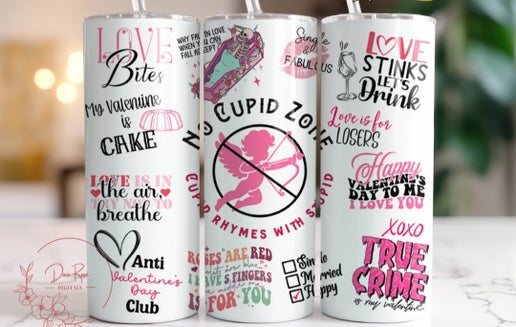 LOVE
Bites
My Valentine
is
CAKE
LOVE IS IN
the air
TRY NOT TO
breathe
Anti
Valentine's
Day
Club
WHY FALL IN LOVE
WHEN YOU CAN
FALL ASLEEP?
Single
is
FABULOUS
NO CUPID ZONE
CUPID RHYMES WITH STUPID
ROSES ARE RED
FINGERS
IS FOR YOU
Single
Married
Happy
LOVE
STINKS
LET'S
Drink
Love is for
LOSERS
Happy
VALENTINE'S
DAY TO ME
I LOVE YOU
XOXO
TRUE
CRIME
is my valentine
DIGITALS